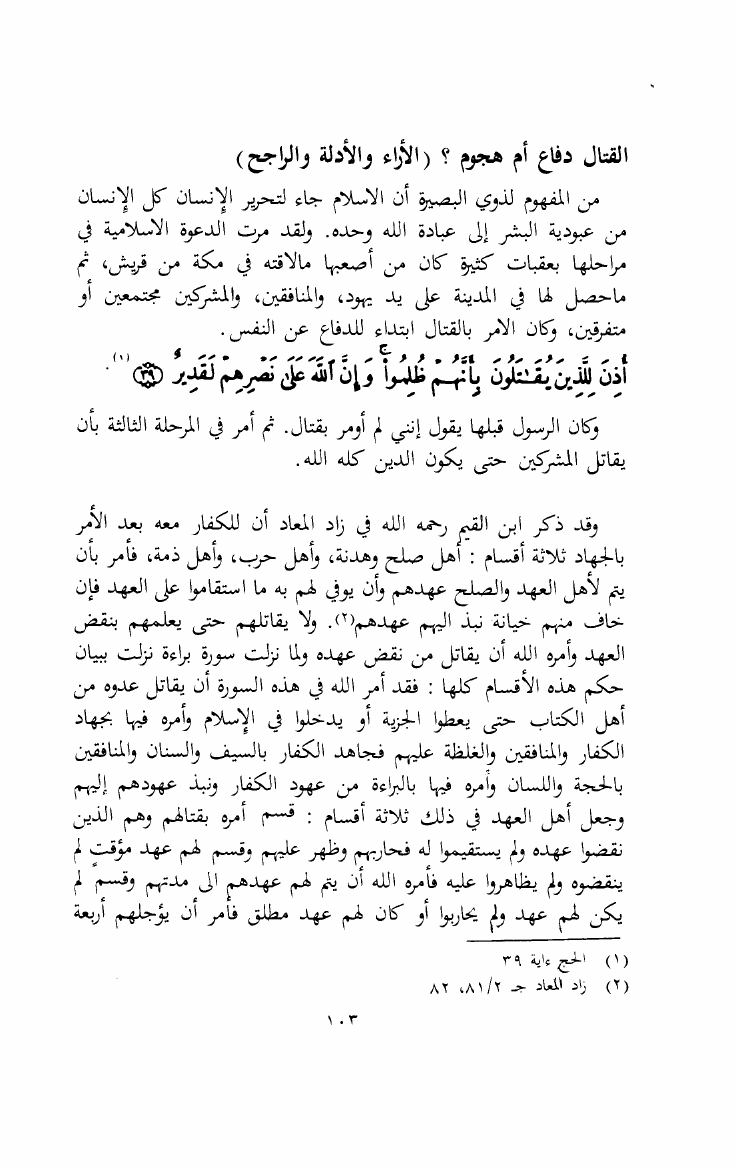 القتال دفاع أم هجوم ؟ (الأراء والأدلة والراجح)
من المفهوم لذوي البصيرة أن الاسلام جاء لتحرير الإنسان كل الإنسان
من عبودية البشر إلى عبادة الله وحده. ولقد مرت الدعوة الاسلامية في
مراحلها بعقبات كثيرة كان من أصعبها مالاقته في مكة من قريش، ثم
ماحصل لها في المدينة على يد يهود، والمنافقين، والمشركين مجتمعين أو
متفرقين، وكان الامر بالقتال ابتداء للدفاع عن النفس.
أُذِنَ لِلَّذِينَ يُقَـٰتَلُونَ بِأَنَّهُمْ ظُلِمُوا۟ ۚ وَإِنَّ ٱللَّهَ عَلَىٰ نَصْرِهِمْ لَقَدِيرٌ ﴿٣٩﴾ (١).
وكان الرسول قبلها يقول إنني لم أومر بقتال. ثم أمر في المرحلة الثالثة بأن
يقاتل المشركين حتى يكون الدين كله الله.
وقد ذكر ابن القيم رحمه الله في زاد المعاد أن للكفار معه بعد الأمر
بالجهاد ثلاثة أقسام : أهل صلح وهدنة، وأهل حرب، وأهل ذمة، فأمر بأن
يتم لأهل العهد والصلح عهدهم وأن يوفي لهم به ما استقاموا على العهد فإن
خاف منهم خيانة نبذ اليهم عهدهم(٢). ولا يقاتلهم حتى يعلمهم بنقض
العهد وأمره الله أن يقاتل من نقض عهده ولما نزلت سورة براءة نزلت ببيان
حكم هذه الأقسام كلها : فقد أمر الله في هذه السورة أن يقاتل عدوه من
أهل الكتاب حتى يعطوا الجزية أو يدخلوا في الإسلام وأمره فيها بجهاد
الكفار والمنافقين والغلظة عليهم فجاهد الكفار بالسيف والسنان والمنافقين
بالحجة واللسان وأمره فيها بالبراءة من عهود الكفار ونبذ عهودهم إليهم
وجعل أهل العهد في ذلك ثلاثة أقسام : قسم أمره بقتالهم وهم الذين
نقضوا عهده ولم يستقيموا له فحاربهم وظهر عليهم وقسم لهم عهد مؤقت لم
ينقضوه ولم يظاهروا عليه فأمره الله أن يتم لهم عهدهم الى مدتهم وقسم لم
يكن لهم عهد ولم يحاربوا أو كان لهم عهد مطلق فأمر أن يؤجلهم أربعة
(١) الحج ءاية ٣٩
(٢) زاد المعاد جـ ٨١/٢، ٨٢
١٠٣